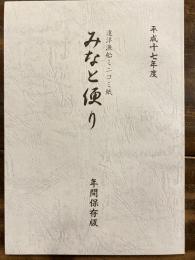 平成十七年度
遠洋漁船ミニコミ紙
みなと便り
年間保存版